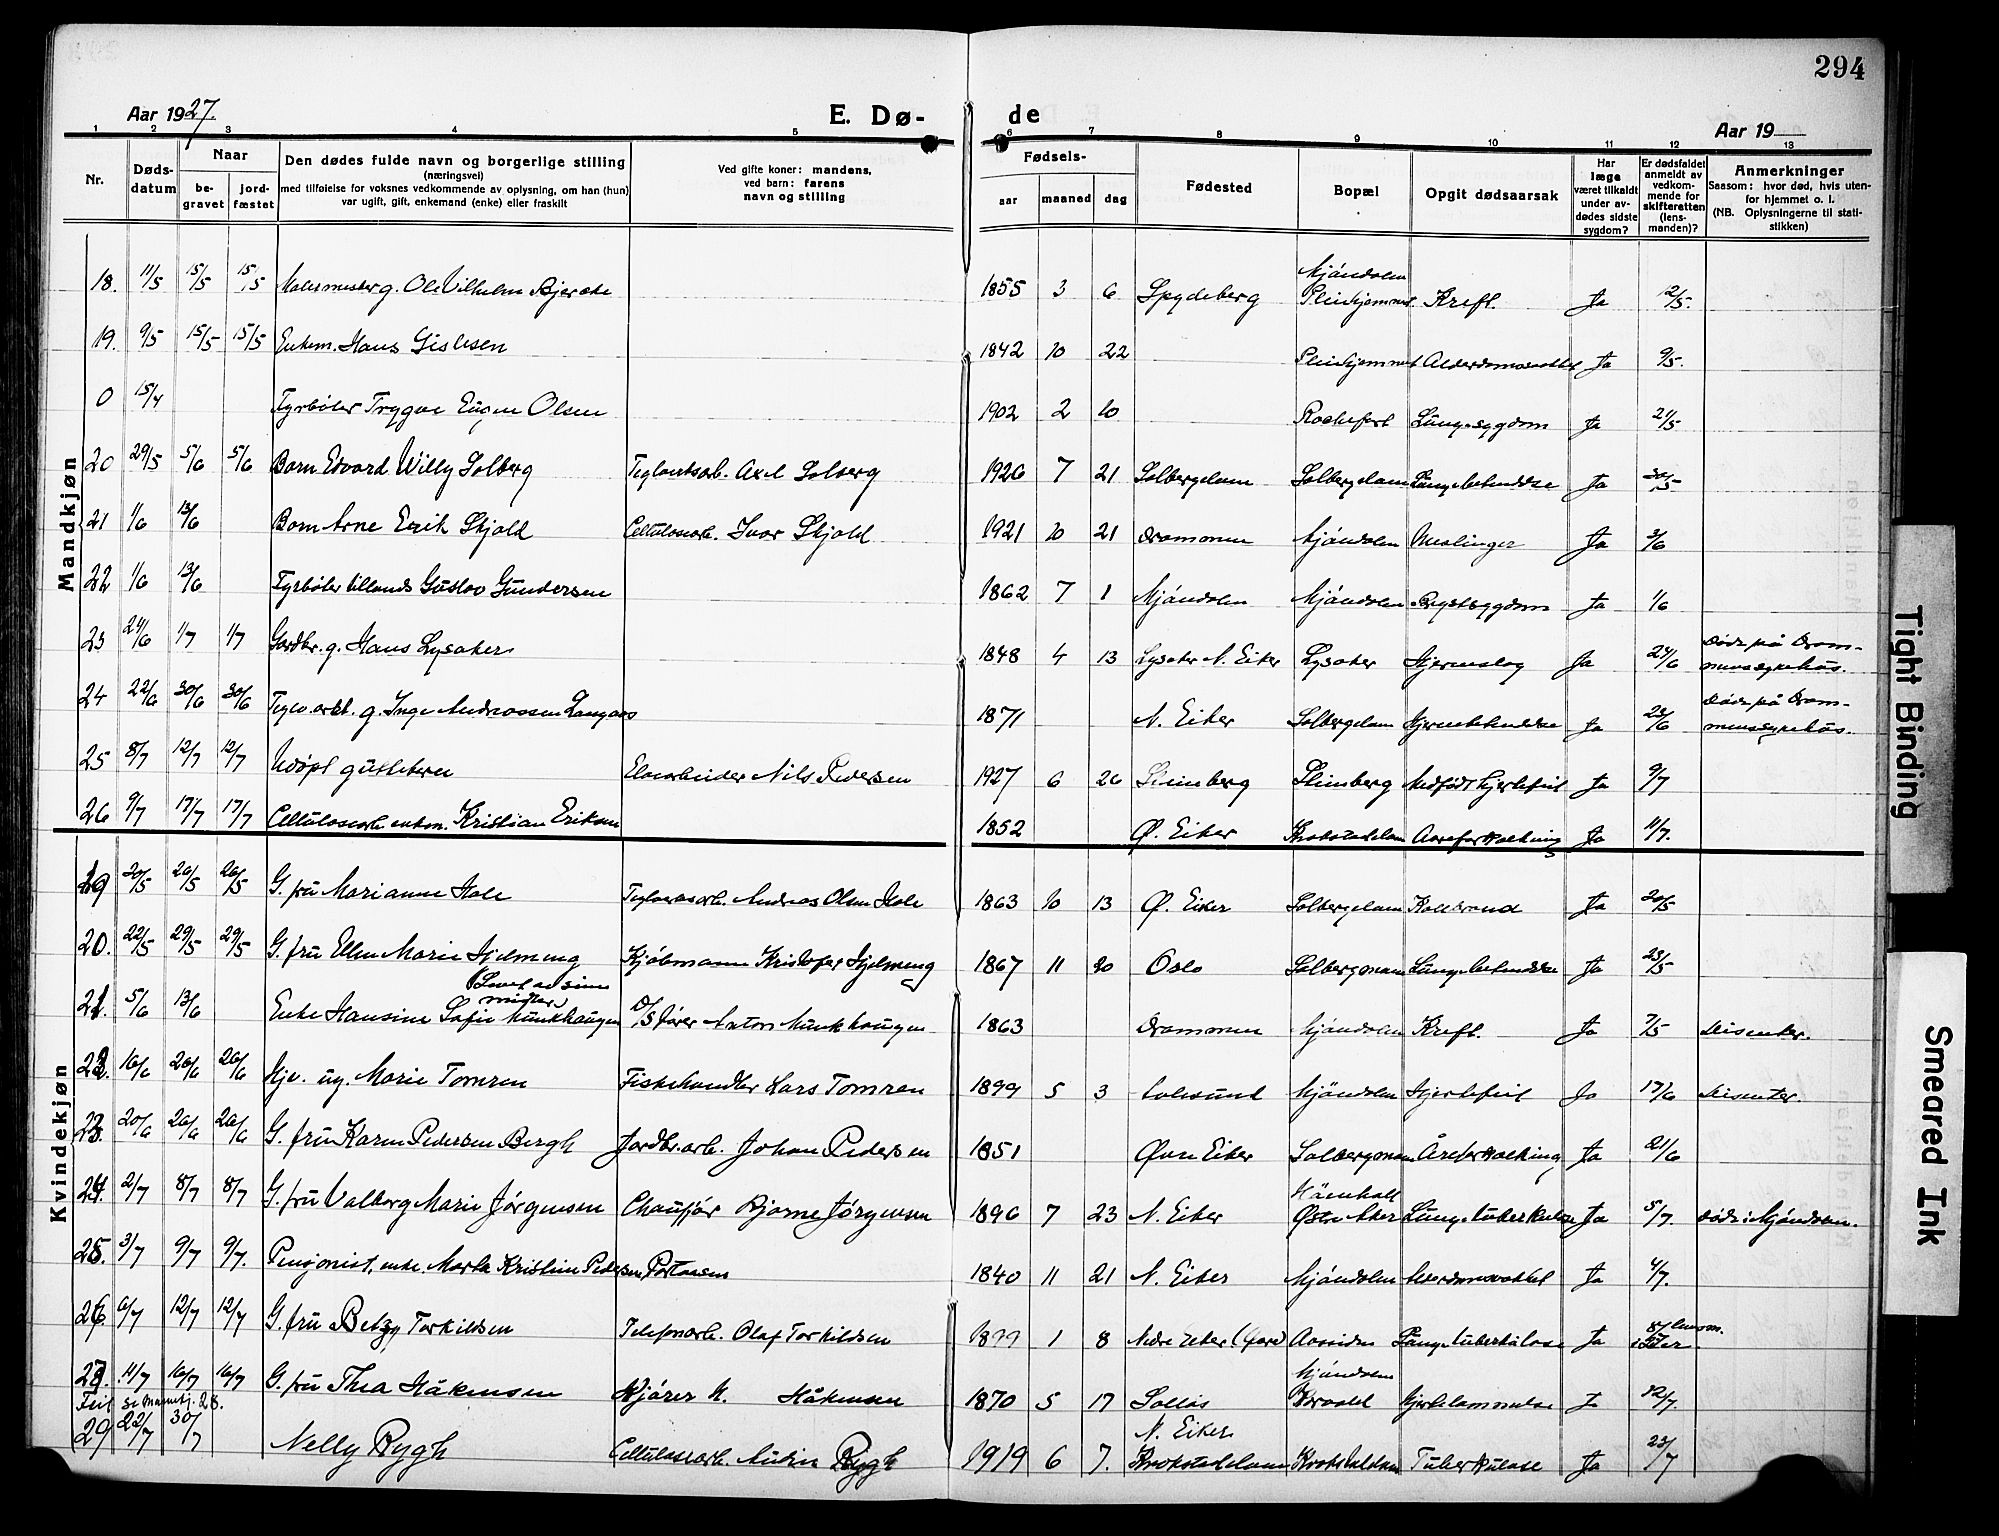 294
Aar 1927.
E. Dø-
de
Aar 19
1 2 3 4 5 6 7 8 9 10 11 12 13
Nr.
Døds-
datum
Naar
be-
gravet
jord-
fæstet
Den dødes fulde navn og borgerlige stilling
(næringsvei)
med tilføielse for voksnes vedkommende av oplysning, om han (hun)
var ugift, gift, enkemand (enke) eller fraskilt
Ved gifte koner: mandens,
ved barn: farens
navn og stilling
Fødsels-
aar maaned dag
Fødested
Bopæl
Opgit dødsaarsak
Har
læge
været tilkaldt
under av-
dødes sidste
sygdom?
Er dødsfaldet
anmeldt av
vedkom-
mende for
skifteretten
(lens-
manden)?
Anmerkninger
Saasom: hvor død, hvis uten-
for hjemmet o. l.
(NB. Oplysningerne til stati-
stikken)
Mandkjøn
Mjøndalen
18. 11/5 15/5 15/5 Malermester g. Ole Vilhelm 1855 3 6 Spydeberg Pleiehjemmet Kreft. Ja 12/5.
19. 9/5 15/5 15/5 Enkem. Hans Gislesen 1842 10 22 Pleiehjemmet Ja 9/5.
0 15/4 Fyrbøter Trygve Eugen Olsen 1902 2 10 Lungesygdom Ja 21/5
20 29/5 5/6 5/6 Barn Edvard Willy Solberg Axel Solberg 1926 7 21 Solbergelven Solbergelven Lungebetendelse Ja 30/5
21 1/6 13/6 Barn Arne Erik Skjold Cellulosearb. Ivar Skjold 1921 10 21 Drammen Mjøndalen Meslinger Ja 3/6
22 1/6 13/6 Fyrbøter tillands Gustav Gundersen 1862 7 1 Mjøndalen Mjøndalen Brystsygdom Ja 1/6
23 1/7 1/7 Gardbr. g. Hans Lysaker 1848 4 13 Lysaker N. Eiker Lysaker Hjerneslag Ja Døde på Dram-
menssykehus.
24 22/6 30/6 30/6 g. Inge Andreassen Langaas 1871 N. Eiker Solbergelven Hjernebetendelse Ja Døde på Dram-
menssykehus.
25 8/7 12/7 12/7 Udøpt guttebarn Nils Pedersen 1927 6 26 Steinberg Steinberg Medfødt hjertefeil Ja 9/7
26 9/7 17/7 17/7 Cellulosearb. enkem. Kristian Eriksen 1852 Ø. Eiker Krokstadelven Aareforkalkning Ja 11/7.
Kvindekjøn
19 20/5 26/5 26/5 G. fru Marianne Hole Andreas Olsen Hole 1863 10 13 Ø. Eiker Solbergelven Koldbrand Ja 20/5
20. 22/5 29/5 29/5 G. fru Ellen Marie Hjelmeng Kjøbmann Kristofer Hjelmeng 1867 11 20 Oslo Lungebetendelse Ja 23/5
(Levet av sine
midler)
21. 5/6 13/6 Enke Hansine Sofie Munkhaugen D/S fører Anton Munkhaugen 1863 Drammen Mjøndalen Kreft. Ja 7/5 Dissenter.
22. 16/6 26/6 26/6 ug. Marie Tomren Fiskehandler Lars Tomren 1899 5 3 Aalesund Mjøndalen Hjertefeil Ja 17/6 Dissenter.
23. 20/6 26/6 26/6 G. fru Karen Pedersen Bergh Jordbr.arb. Johan Pedersen 1851 Øvre Eiker Åreforkalkning Ja 21/6
24. 2/7 8/7 8/7 G. fru Valborg Marie Jørgensen Chauffør Bjarne Jørgensen 1896 7 23 N. Eiker Østre Aker Lungetuberkulose Ja 5/7. Døde i Mjøndalen.
25. 3/7 9/7 9/7. Pensjonist, enke. Marte Kristine Pedersen Portaasen 1840 11 21 N. Eiker Mjøndalen Ja 4/7.
26. 6/7 12/7 12/7 G. fru Betzy Torkildsen Telefonarb. Olaf Torkildsen 1899 1 8 Nedre Eiker Aassiden Lungetuberkulose Ja 8/7
Mjøndalen
11/7 16/7 16/7 G. fru Thea Håkensen Håkensen 1870 5 17 Hjertelammelse Ja 12/7.
Feil se 28.
N. Eiker
29 22/7 30/7 Nelly Rygh Cellulosearb. Rygh 1919 6 7. Krokstadelven Krokstadelven Tuberkulose Ja 23/7
Tight Binding
Smeared Ink